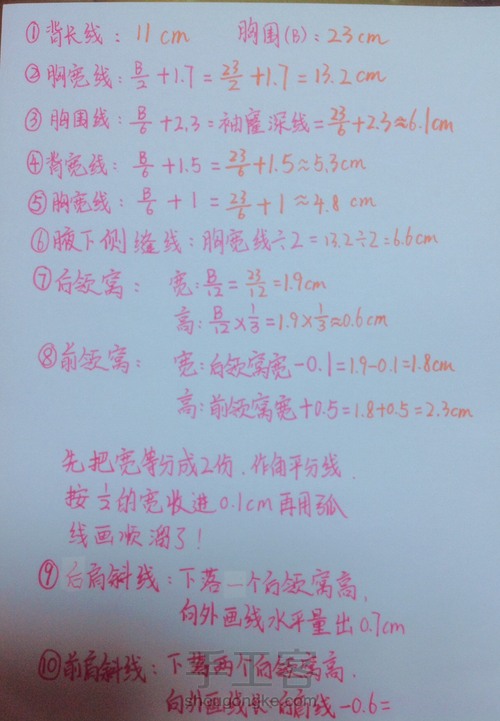 ①背长线: 11cm 胸围(B): 23cm
②胸宽线: B/2+1.7=23/2+1.7=13.2cm
③胸围线: B/6+2.3=袖窿深线=23/6+2.3≈6.1cm
④背宽线: B/6+1.5=23/6+1.5≈5.3cm
⑤胸宽线: B/6+1=23/6+1≈4.8cm
⑥腋下侧缝线:胸宽线÷2=13.2÷2=6.6cm
⑦后领窝: 宽:B/12=23/12=1.9cm
高:B/12×1/3=1.9×1/3≈0.6cm
⑧前领窝: 宽:后领窝宽-0.1=1.9-0.1=1.8cm
高:前领窝宽+0.5=1.8+0.5=2.3cm
先把宽等分成2份,作角平分线.
按1/2的宽收进0.1cm再用弧
线画顺溜了!
⑨后肩斜线:下落一个后领窝高,
向外画线水平量出0.7cm
⑩前肩斜线:下落两个后领窝高.
向外画线长后肩线-0.6=
手工客
shougongke.com